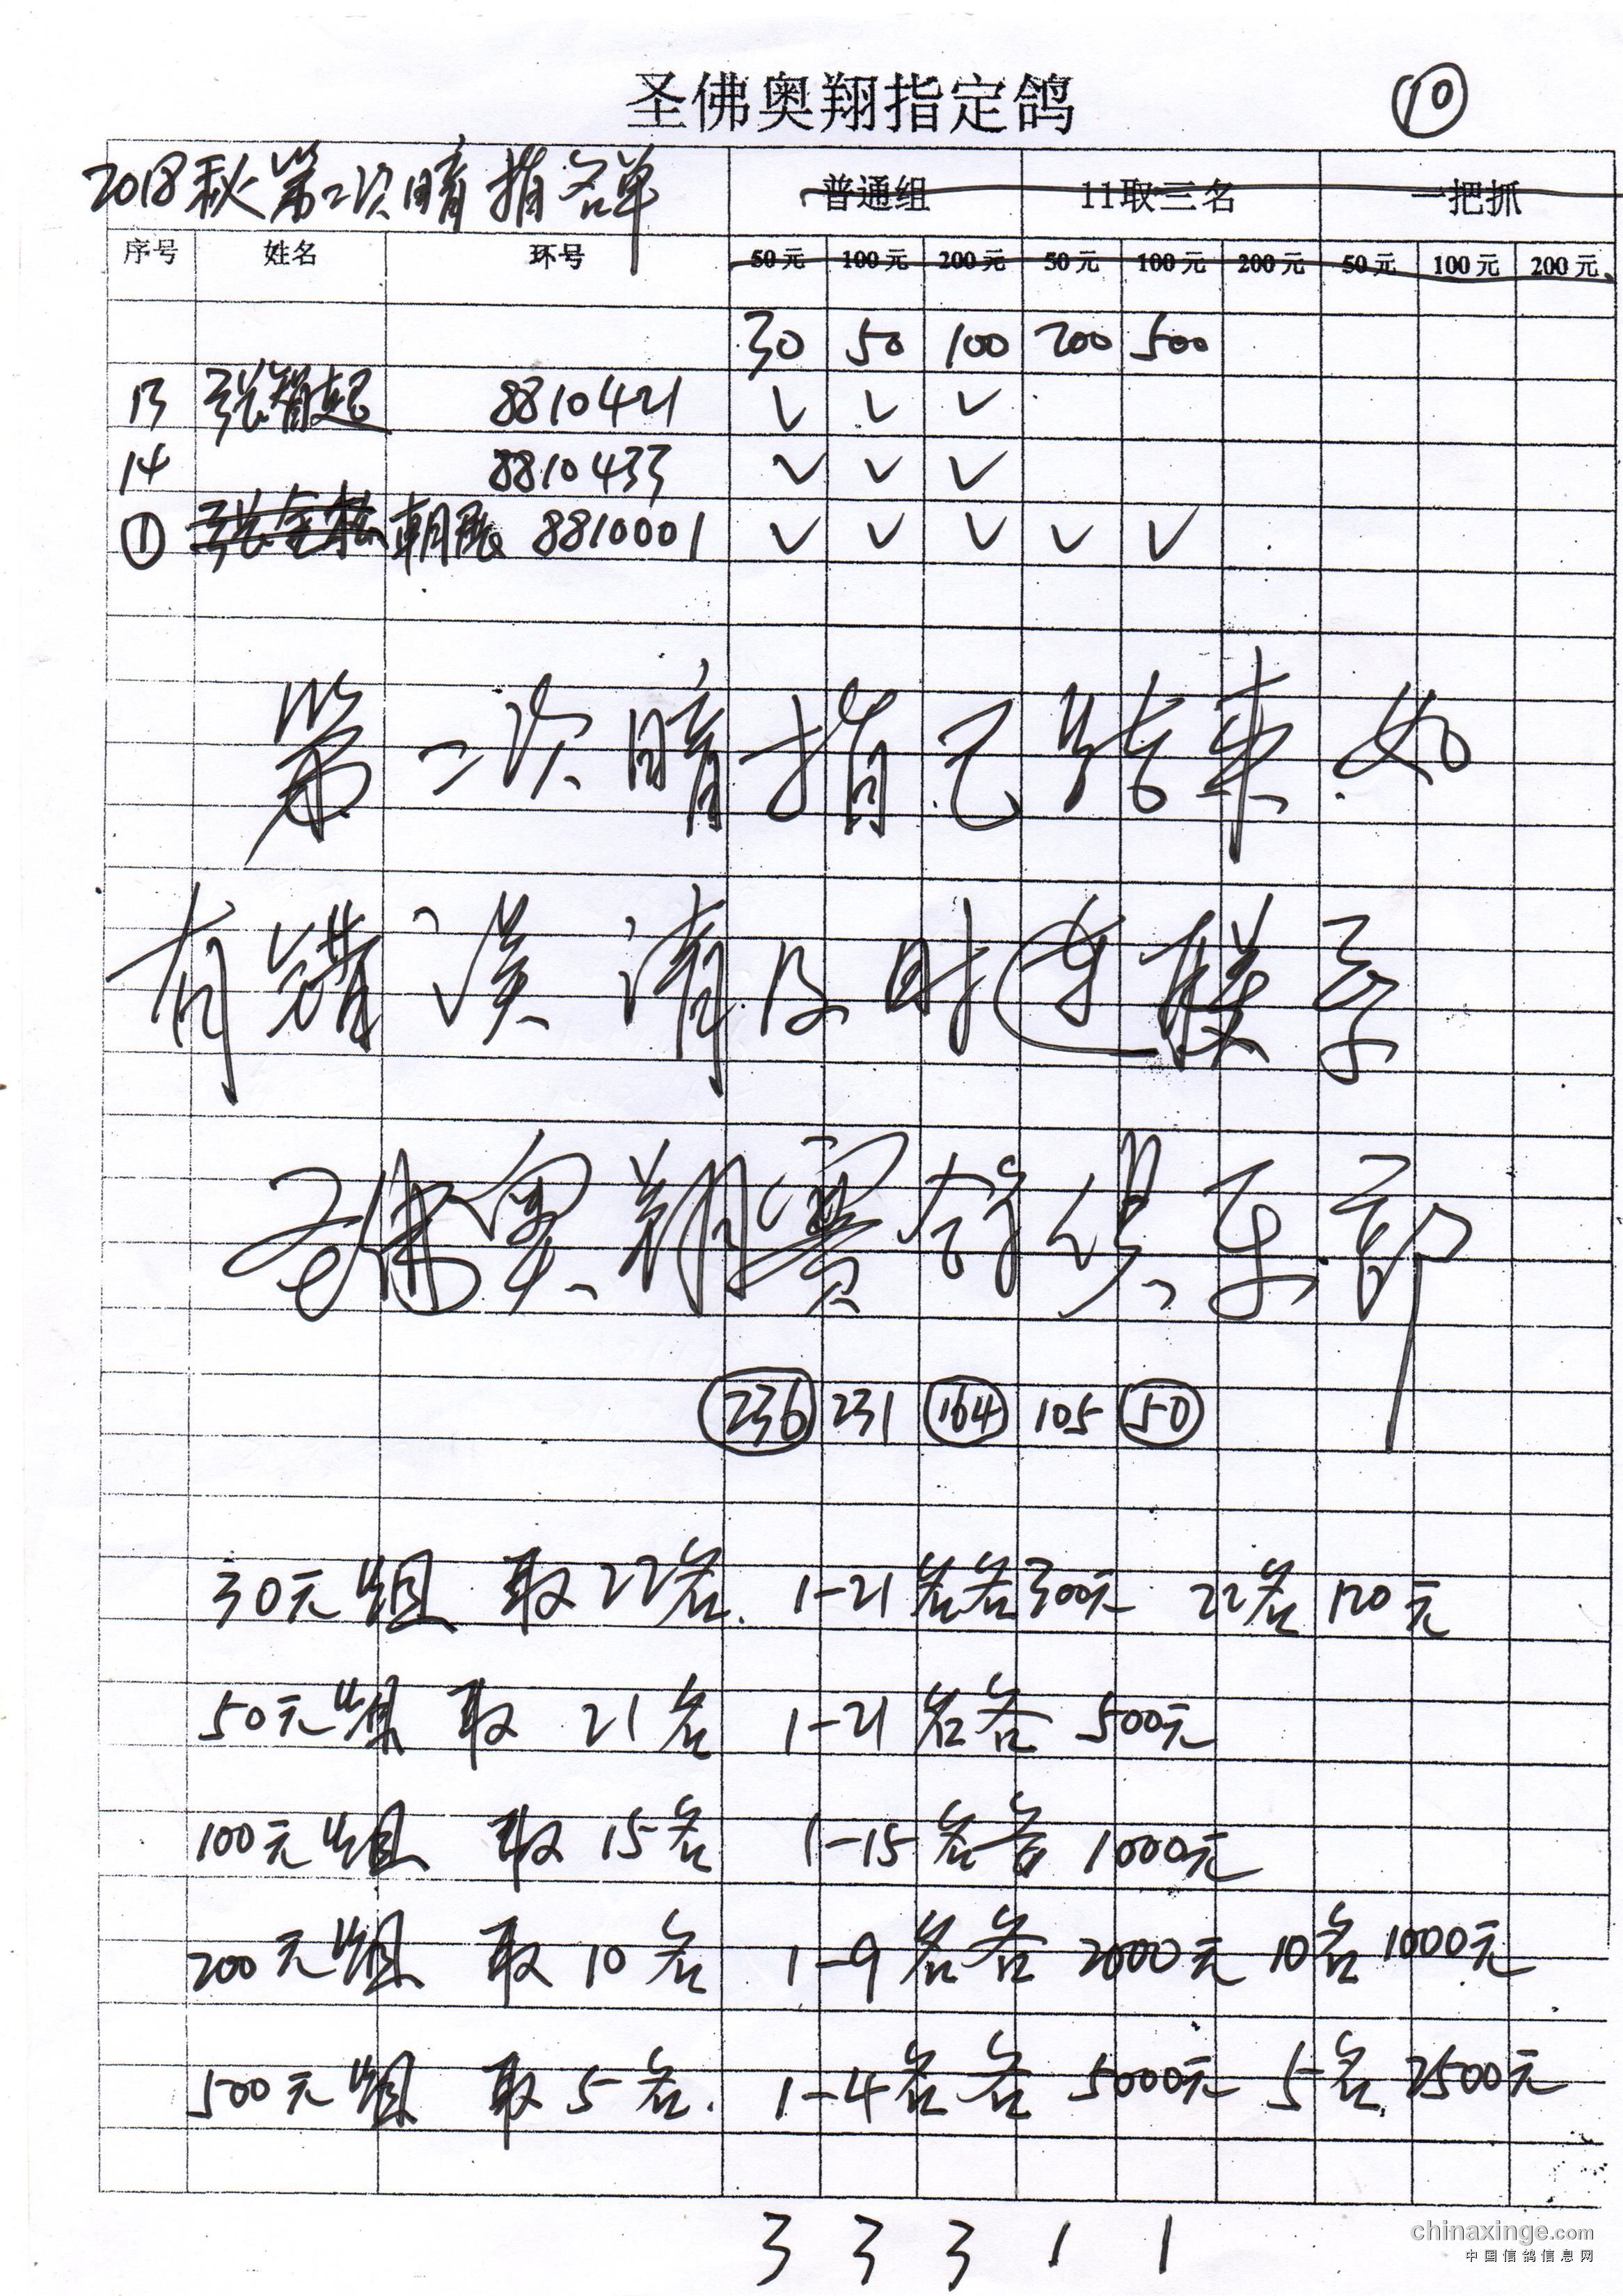 圣佛奥翔指定鸽 ⑩
2018秋第二次暗指名单 普通组 11取三名 一把抓
序号 姓名 环号 50元 100元 200元 50元 100元 200元 50元 100元 200元
30 50 100 200 500
13 张智超 8810421 ✓ ✓ ✓
14 8810433 ✓ ✓ ✓
① 张金 朝 8810001 ✓ ✓ ✓ ✓ ✓
第二次暗指已结束 如
有错误 请及时连接系
圣佛奥翔赛鸽俱乐部
236 231 164 105 50
30元组 取22名. 1-21名各300元 22名 120元
50元组 取 21名 1-21名各 500元
100元组 取 15名 1-15名各 1000元
200元组 取 10名 1-9名各 2000元 10名 1000元
500元组 取 5名. 1-4名各 5000元 5名. 2500元
3 3 3 1 1
chinaxinge.com
中国信鸽信息网